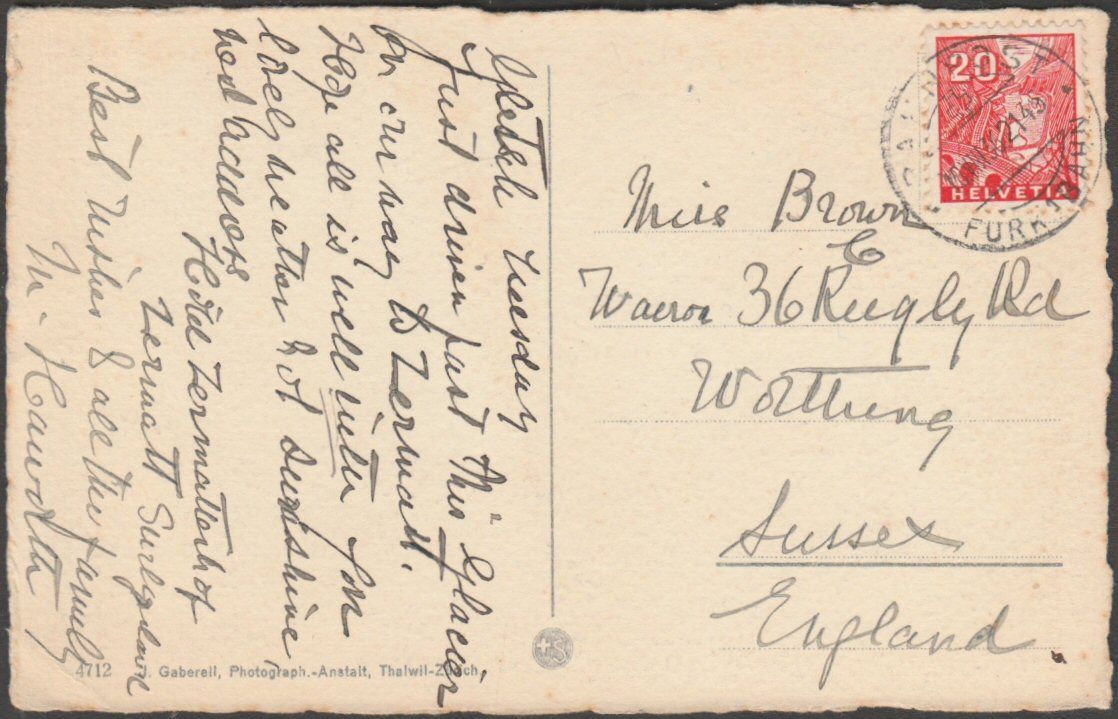 Gletsch Tuesday
Just driven past this Glacier
on our way to Zermatt.
Hope all is well with you
lovely weather hot sunshine,
address
Hotel Zermatterhof
Zermatt
Best Wishes to all the family
M. Haworth
4712 J. Gaberell, Photograph.-Anstalt, Thalwil-Zürich.
20
HELVETIA
FURKA
Miss Brown
36 Rugby Rd
Worthing
Sussex
England